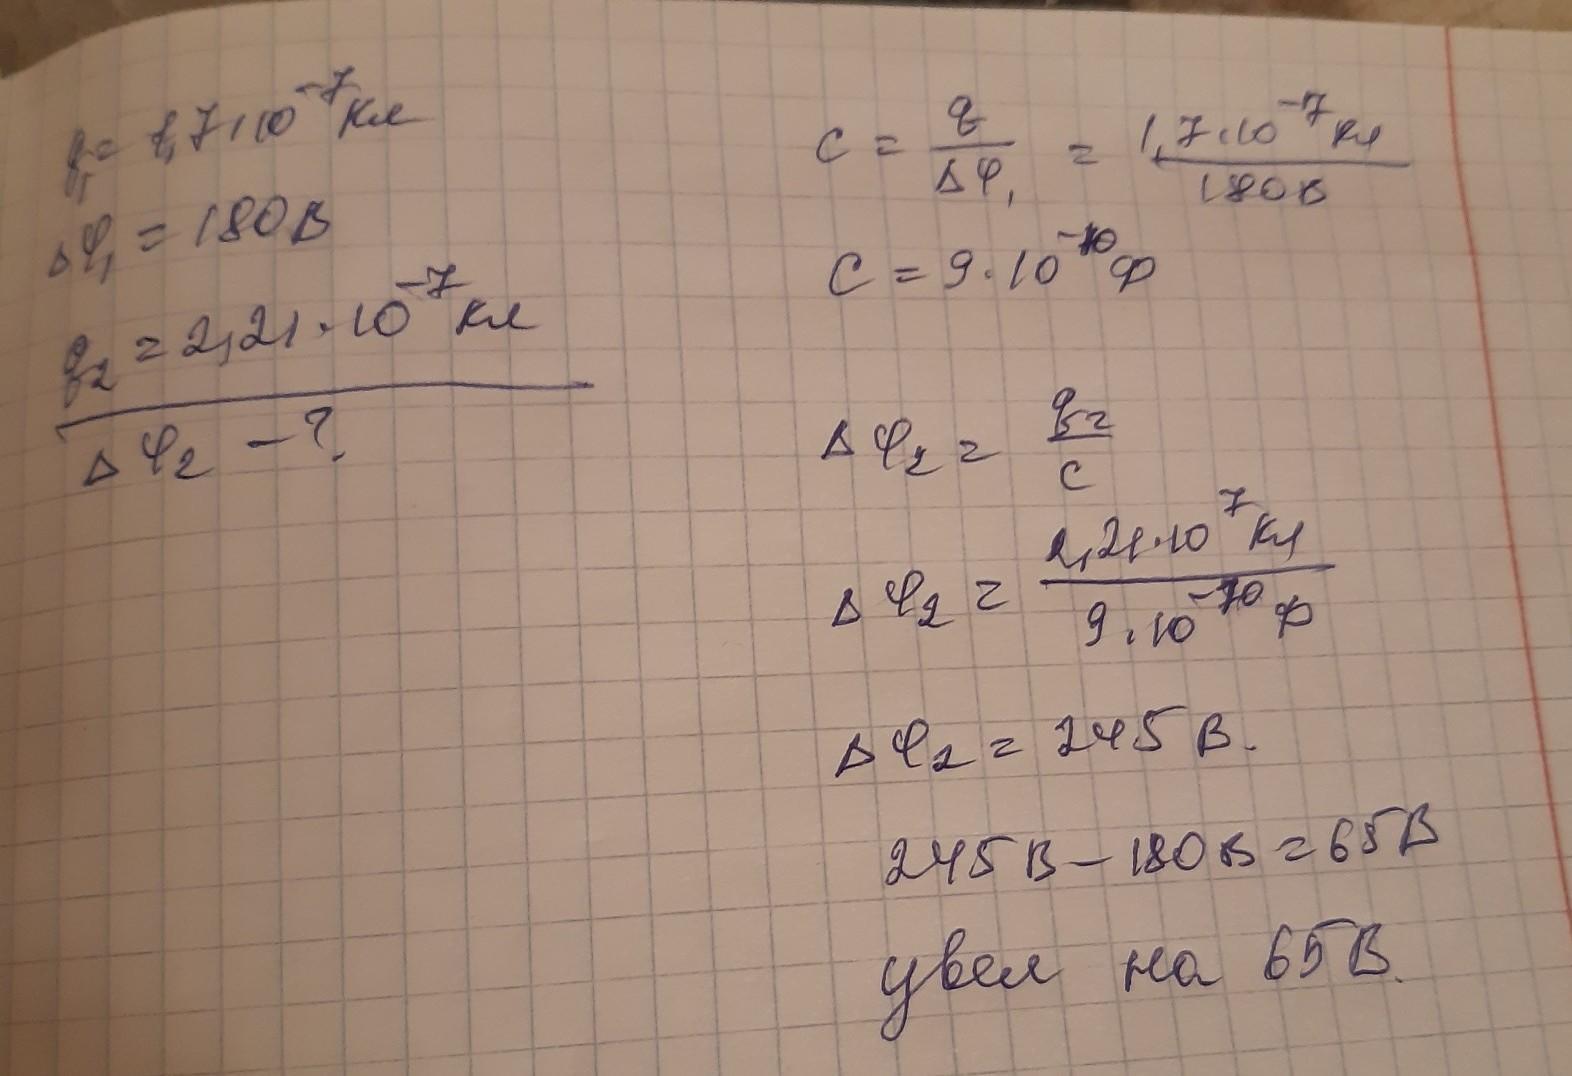 q₁ = 1,7·10⁻⁷ Кл
Δφ₁ = 180 В
q₂ = 2,21·10⁻⁷ Кл
Δφ₂ – ?
C = q/Δφ₁ = 1,7·10⁻⁷ Кл/180 В
C = 9·10⁻¹⁰ Ф
Δφ₂ = q₂/C
Δφ₂ = 2,21·10⁷ Кл/9·10⁻¹⁰ Ф
Δφ₂ = 245 В.
245 В – 180 В = 65 В
увел на 65 В.